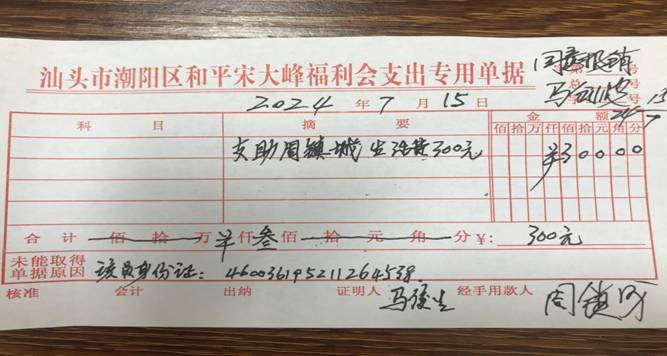 汕头市潮阳区和平宋大峰福利会支出专用单据
同意报销
第 号
总 号
字 号
2024年7月15日
科目 摘要 金额
佰拾万仟佰拾元角分
支助周镇城生活费300元 ¥30000
合计 佰 拾 万 ¥ 仟 叁 佰 拾 元 角 分 ¥: 300元
未能取得
单据原因 该员身份证:
核准 会计 出纳 证明人 马俊生 经手用款人